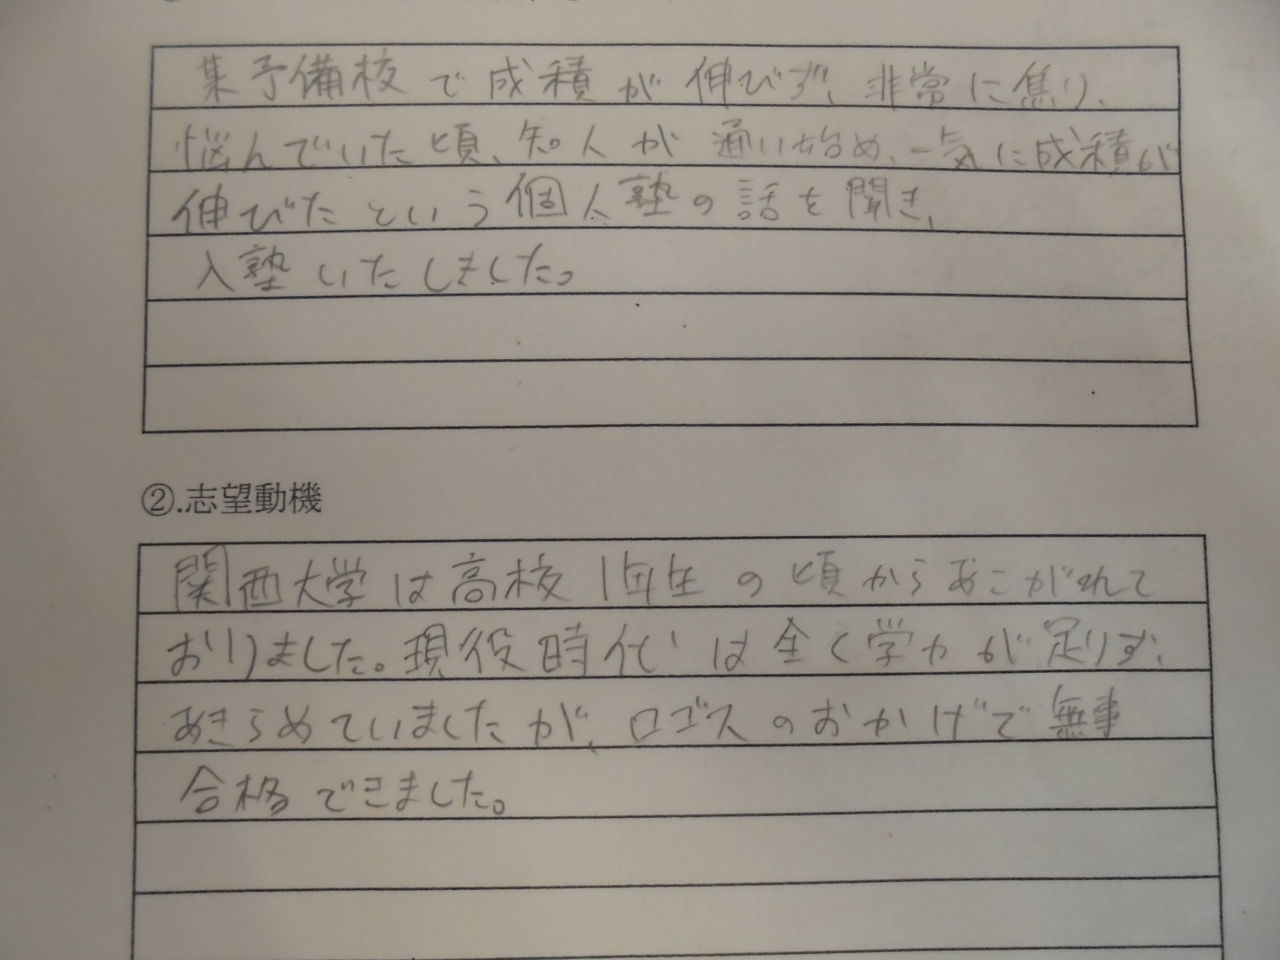 某予備校で成積が伸びず、非常に焦り、
悩んでいた頃、知人が通い始め、一気に成積が
伸びたという個人塾の話を聞き、
入塾いたしました。
②.志望動機
関西大学は高校1年生の頃からあこがれて
おりました。現役時代は全く学力が足りず、
あきらめていましたが、ロゴスのおかげで無事
合格できました。